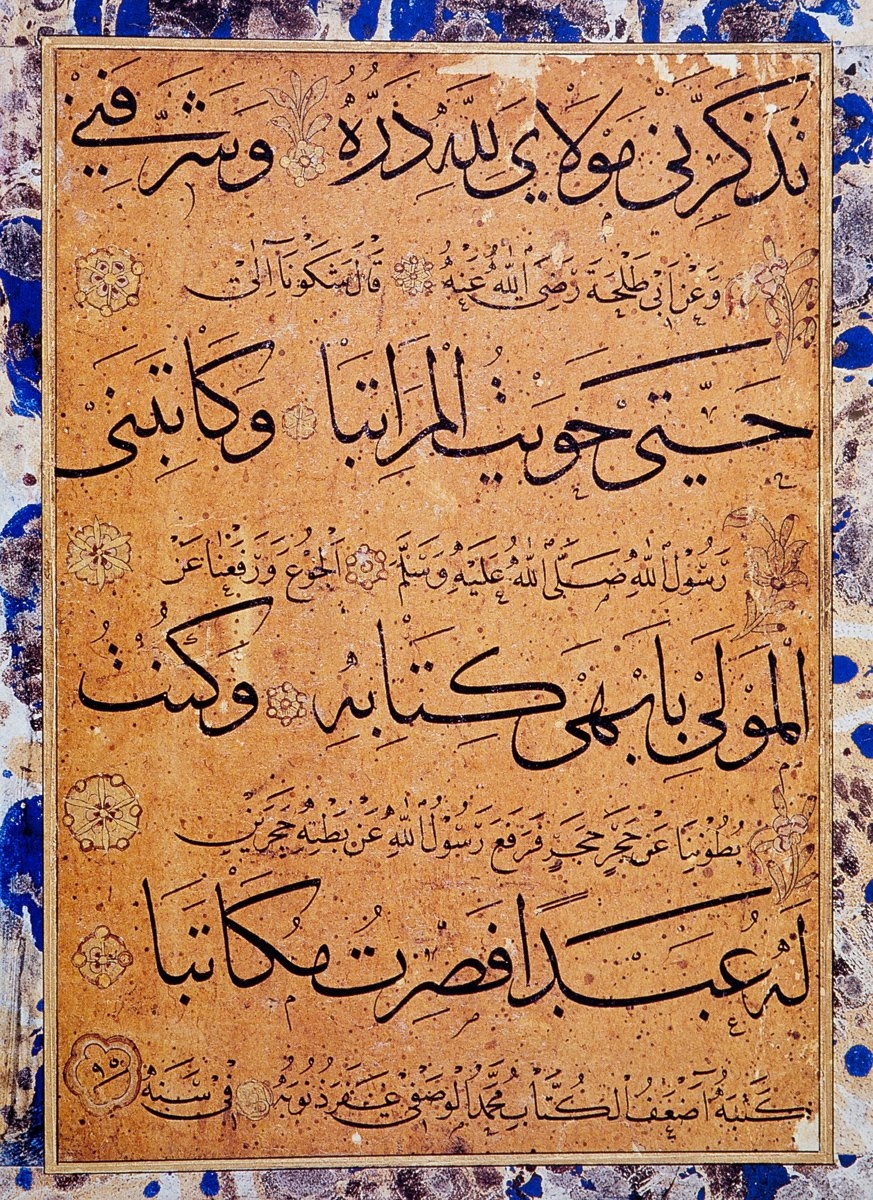 تَذَكَّرَنِي مَوْلَايَ لِلَّهِ دَرُّهُ وَشَرَّفَنِي
وَعَنْ اَبِي طَلْحَةَ رَضِيَ اللهُ عَنْهُ قَالَ شَكَوْنَا اِلَى
حَتَّى حَوَيْتُ الْمَرَاتِبَا وَكَاتَبَنِي
رَسُوْلِ اللهِ صَلَّى اللهُ عَلَيْهِ وَسَلَّمَ الْجُوْعَ وَرَفَعْنَا عَنْ
الْمَوْلَى بِاَبْهَى كِتَابِهِ وَكُنْتُ
بُطُوْنِنَا عَنْ حَجَرٍ حَجَرٍ فَرَفَعَ رَسُوْلُ اللهِ عَنْ بَطْنِهِ حَجَرَيْنِ
لَهُ عَبْدًا فَصِرْتُ مُكَاتَبَا
كَتَبَهُ اَضْعَفُ الْكُتَّابِ مُحَمَّدُ الْوَصْفِي غُفِرَ ذُنُوبُهُ فِي سَنَةِ ٩٥